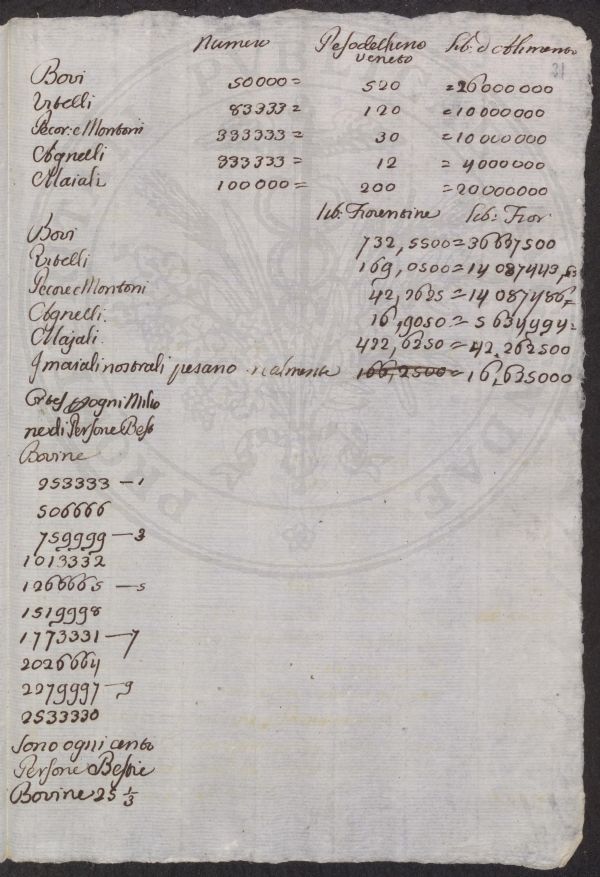 31
Numero Peso del seno Lib: d'alimento
veneto
Bovi 50000= 520 =26000000
Vitelli 83333= 120 =10000000
Pecor: e Montoni 333333= 30 =10000000
Agnelli 333333= 12 =4000000
Maiali 100000= 200 =20000000
lib: Fiorentine Lib: Fior:
Bovi 732,5500=36637500
Vitelli 169,0500=14087443,
Pecor e Montoni 42,2625=14087486,
Agnelli. 16,9050=5634494
Majali. 422,6250=42,262500
I maiali nostrali pesano realmente 166,2500=16,625000
ogni Milio
ne di Persone Best
Bovine
253333 — 1
506666
759999 — 3
1013332
1266665 — 5
1519998
1773331 — 7
2026664
2279997 — 9
2533330
sono ogni cento
Persone Bestie
Bovine 25 1/3